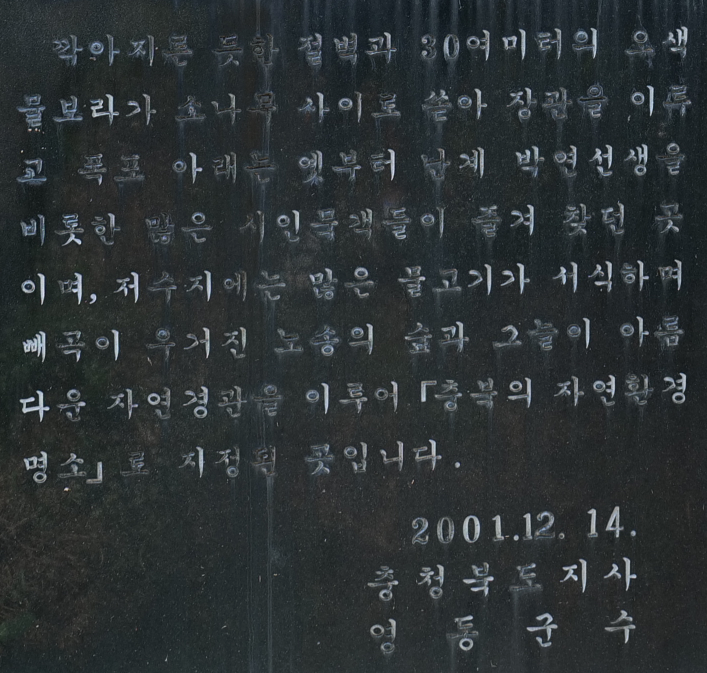 깍아지른 듯한 절벽과 30여미터의 옥색
물보라가 소나무 사이로 쏟아 장관을 이루
고 폭포 아래는 옛부터 난계 박연선생을
비롯한 많은 시인묵객들이 즐겨 찾던 곳
이며, 저수지에는 많은 물고기가 서식하며
빼곡이 우거진 노송의 숲과 그늘이 아름
다운 자연경관을 이루어 「충북의 자연환경
명소」로 지정된 곳입니다.
2001.12. 14.
충청북도지사
영 동 군 수